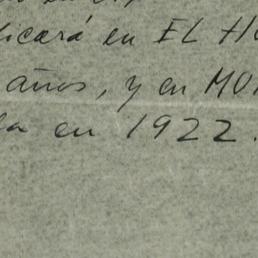 licará en EL HO
años, y en MU
la en 1922.